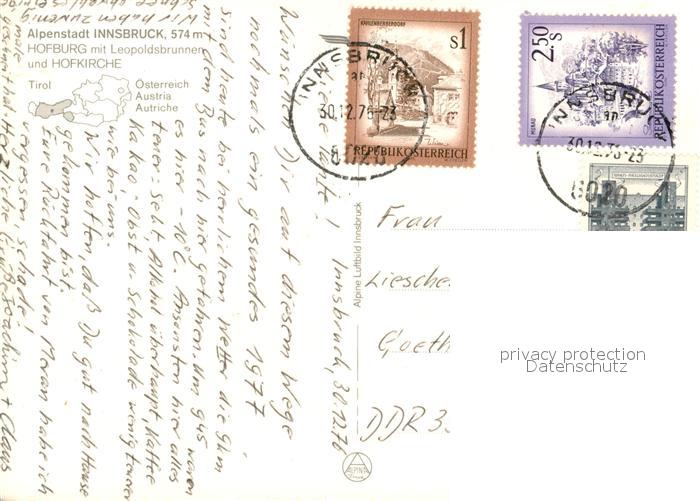 Alpenstadt INNSBRUCK, 574 m
HOFBURG mit Leopoldsbrunnen
und HOFKIRCHE
Tirol
Österreich
Austria
Autriche
Innsbruck, 30.12.76
Wünsche Dir auf diesem Wege
nochmals ein gesundes 1977
Sind heute bei herrlichem Wetter die
mit dem Bus nach hier gefahren. Um 9 45 waren
es hier -10°C. Ansonsten hier alles
teuer - Alkohol überhaupt, Kaffee
Kakao, Obst u. Schokolade wenig teurer
wie bei uns.
Wir hoffen, daß Du gut nach Hause
gekommen bist.
Eine Rückfahrt von Meran habe ich
vergessen, schade!
Herzliche Joachim + Claus
Wir haben zuwenig
Schnee
KAHLENBERGERDORF
S1
REPUBLIK ÖSTERREICH
2.50
S
MURAU
REPUBLIK ÖSTERREICH
1
INNSBRUCK
30.12.76-23
6020
INNSBRU
30.12.76-23
6020
Alpine Luftbild Innsbruck
Frau
Liesche
Goeth
DDR 3.
privacy protection
Datenschutz
ALPINE